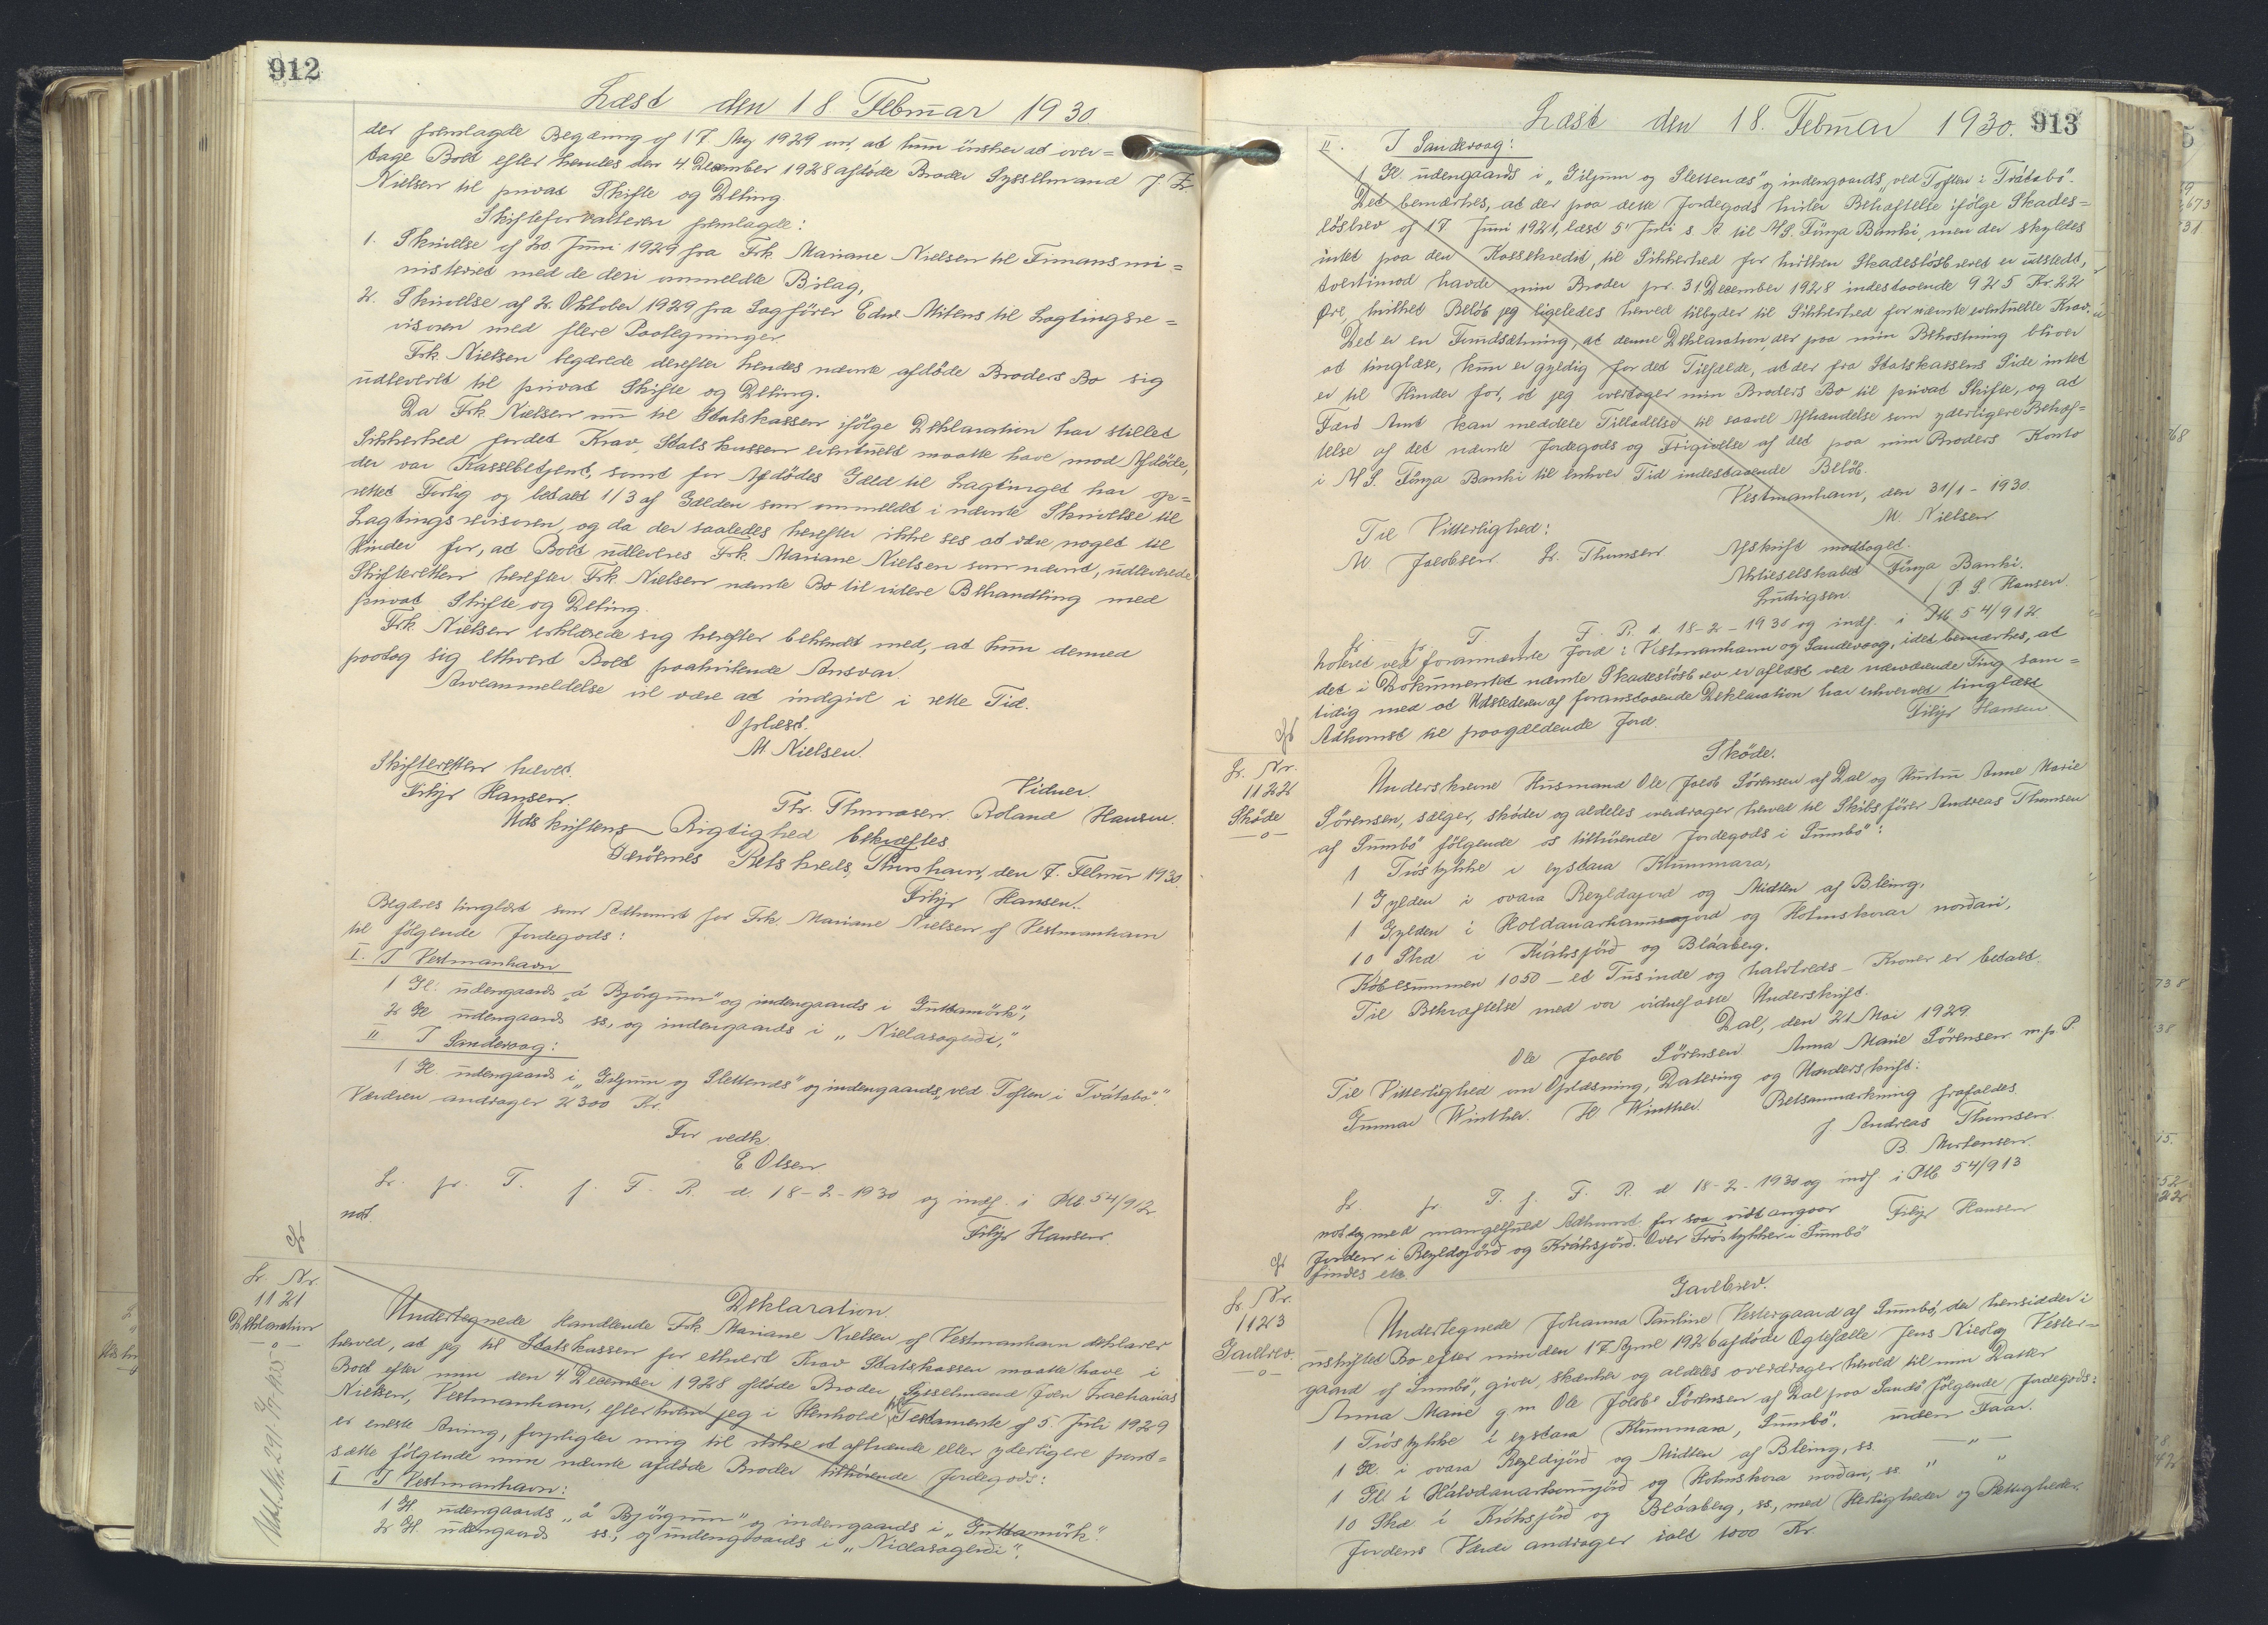 912
Læst den 18 Februar 1930.
der fremlagde Begæring af 17 Maj 1929 om, at hun ønsker at over=
tage Boet efter hendes den 4 December 1928 afdøde Broder Sysselmand J. Z.
Nielsen til privat Skifte og Deling.
Skifteforvalteren fremlagde:
1. Skrivelse af 20 Juni 1929 fra Frk. Mariane Nielsen til Finansmi=
nisteriet med de deri ommeldte Bilag,
2. Skrivelse af 2. Oktober 1929 fra Sagfører Edw. Mitens til Lagtingsre=
visoren med flere Paategninger.
Frk. Nielsen begærede derefter hendes nævnte afdøde Broders Bo sig
udleveret til privat Skifte og Deling.
Da Frk. Nielsen nu til Statskassen ifølge Deklaration har stillet
Sikkerhed for det Krav, Statskassen eventuelt maatte have mod Afdøde,
der var Kassebetjent, samt for Afdødes Gæld til Lagtinget har op=
rettet Forlig og betalt 1/3 af Gælden som ommeldt i nævnte Skrivelse til
Lagtingsrevisoren, og da der saaledes herefter ikke ses at være noget til
Hinder for, at Boet udleveres Frk. Mariane Nielsen som nævnt, udleverede
Skifteretten herefter Frk. Nielsen nævnte Bo til videre Behandling med
privat Skifte og Deling.
Frk. Nielsen erklærede sig herefter bekendt med, at hun derved
paatog sig ethvert Boet paahvilende Ansvar.
Arveanmeldelse vil være at indgive i rette Tid.
Oplæst.
M. Nielsen.
Skifteretten hævet.
Filip Hansen.
Vidner.
Th. Thomasen. Roland Hansen.
Udskriftens Rigtighed bekræftes
Færøernes Retskreds, Thorshavn, den 7. Februar 1930.
Filip Hansen.
Begæres tinglæst som Adkomst for Frk. Mariane Nielsen af Vestmanhavn
til følgende Jordegods:
I. I Vestmanhavn
1 Gl. udengaards „á Bjørgum" og indengaards i „Guttamørk",
2 Gl udengaards ss, og indengaards i „Nielasagerði",
II. I Sandevaag:
1 Gl. udengaards i „Giljum og Slettenæs" og indengaards „ved Toften i Tvátabø".
Værdien andrager 2300 Kr.
For vedk.
E Olsen
L. p. T. f. F. R. d. 18-2-1930 og indf. i Ptb. 54/912
not.
Filip Hansen.
L. Nr.
1121
Deklaration
Deklaration.
Undertegnede Handlende Frk. Mariane Nielsen af Vestmanhavn deklarer
herved, at jeg til Statskassen for ethvert Krav Statskassen maatte have i
Boet efter min den 4 December 1928 afdøde Broder, Sysselmand Joen Zacharias
Nielsen, Vestmanhavn, efter hvem jeg i Henhold til Testamente af 5. Juli 1929
er eneste Arving, forpligter mig til ikke at afhænde eller yderligere pant=
sætte følgende min nævnte afdøde Broder tilhørende Jordegods:
I I Vestmanhavn:
1 Gl. udengaards „á Bjørgum" og indengaards i „Guttamørk".
2 Gl. udengaards ss, og indengaards i „Nielasagerði".
913
Læst den 18. Februar 1930.
II. I Sandevaag:
1 Gl. udengaards i „Giljum og Slettenæs" og indengaards „ved Toften i Tvátabø".
Det bemærkes, at der paa dette Jordegods hviler Behæftelse ifølge Skades=
løsbrev af 17 Juni 1921, læst 5' Juli s. A. til A/S. Føroya Banki, men der skyldes
intet paa den Kassekredit, til Sikkerhed for hvilken Skadesløsbrevet er udstedt,
tvertimod havde min Broder pr. 31 December 1928 indestaaende 925 Kr. 22
Øre, hvilket Beløb jeg ligeledes herved tilbyder til Sikkerhed for nævnte eventuelle Krav.
Det er en Forudsætning, at denne Deklaration, der paa min Bekostning bliver
at tinglæse, kun er gyldig for det Tilfælde, at der fra Statskassens Side intet
er til Hinder for, at jeg overtager min Broders Bo til privat Skifte, og at
Færø Amt kan meddele Tilladelse til saavel Afhændelse som yderligere Behæf=
telse af det nævnte Jordegods og Frigivelse af det paa min Broders Konto
i A/S. Føroya Banki til enhver Tid indestaaende Beløb.
Vestmanhavn, den 31/1 - 1930.
M. Nielsen
Til Vitterlighed:
M Jacobsen. L. Thomsen
Afskrift modtaget.
Aktieselskabet Føroya Banki.
Ludvigsen. / P. S. Hansen.
L. p. T. f. F. R. d. 18-2-1930 og indf. i Ptb 54/912
noteret ved forannævnte Jord i Vestmanhavn og Sandevaag, idet bemærkes, at
det i Dokumentet nævnte Skadesløsbrev er aflæst ved nærværende Ting sam=
tidig med at Udstederen af foranstaaende Deklaration har erhvervet tinglæst
Adkomst til paagældende Jord.
Filip Hansen
L. Nr.
1122
Skøde
Skøde.
Underskrevne Husmand Ole Jacob Sørensen af Dal og Hustru Anne Marie
Sørensen, sælger, skøder og aldeles overdrager herved til Skibsfører Andreas Thomsen
af Sumbø følgende os tilhørende Jordegods i Sumbø:
1 Tiøstykke i eystara Klummara,
1 Gylden i ovara Reyldajørd og Midten af Bleing,
1 Gylden i Holdanarhamsajord og Holmskorar norðari,
10 Skd i Kráksjørð og Bláaberg.
Købesummen 1050 - et Tusinde og halvtreds - Kroner er betalt.
Til Bekræftelse med vor vidnefaste Underskrift.
Dal, den 21 Mai 1929
Ole Jacob Sørensen Anna Marie Sørensen m. p. P.
Til Vitterlighed om Oplæsning, Datering og Underskrift:
Gunnar Winther. H Winther. Retsanmærkning frafaldes.
J. Andreas Thomsen.
B. Mortensen.
L. p. T. f. F. R. d 18-2-1930 og indf. i Ptb 54/913
not dog med mangelfuld Adkomst for saa vidt angaar
Jorden i Reyldajørð og Kráksjørð. Over Tiøstykker i Sumbø
findes etc.
Filip Hansen
L. Nr.
1123
Gavebrev.
Gavebrev.
Undertegnede Johanna Pauline Vestergaard af Sumbø, der hensidder i
uskiftet Bo efter min den 17 April 1926 afdøde Ægtefælle Jens Nicolaj Vester=
gaard af Sumbø, giver, skænker og aldeles overdrager herved til min Datter
Anna Marie g. m. Ole Jacob Sørensen af Dal paa Sandø følgende Jordegods:
1 Tiøstykke i eystara Klummara, Sumbø, uden Faar.
1 Gl. i ovara Reyldjørð og Midten af Bleing, ss. — " —
1 Gl. i Hálvdanarhamjørð og Holmskora norðari, ss. " "
10 Skd. i Kráksjørð og Bláaberg, ss., med Herligheder og Rettigheder.
Jordens Værdi andrager ialt 1000 Kr.